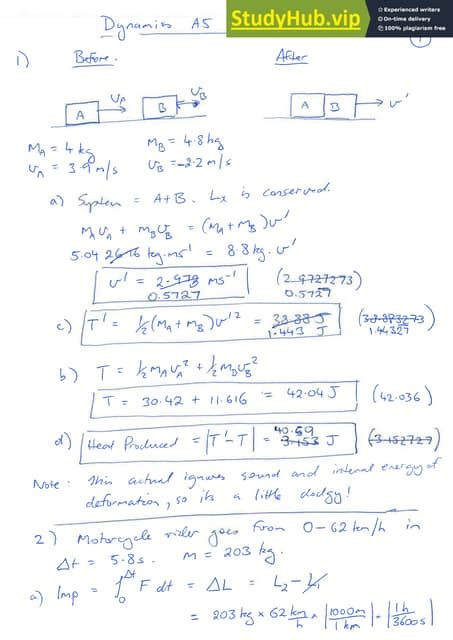 Dynamics A5
StudyHub.vip
Experienced writers
On-time delivery
100% plagiarism free
1
1) Before. After
A vA B vB A B v'
MA = 4 kg MB = 4.8 kg
vA = 3.9 m/s vB = -2.2 m/s
a) System = A+B. Lx is conserved.
MAvA + MBvB = (MA + MB)v'
5.04 26.16 kg·ms⁻¹ = 8.8 kg. v'
v' = 2.973 ms⁻¹ (2.9727273)
0.5727 0.5727
c) T' = ½(MA + MB)v'² = 38.88 J (38.883273)
1.443 J 1.44327
b) T = ½MAvA² + ½MBvB²
T = 30.42 + 11.616 = 42.04 J (42.036)
40.59
d) Heat Produced = |T' - T| = 3.153 J (3.152727)
Note: This actual ignores sound and internal energy of
deformation, so its a little dodgy!
2) Motorcycle rider goes from 0-62 km/h in
Δt = 5.8s. m = 203 kg.
a) Imp = ∫₀^Δt F dt = ΔL = L2 - L1
= 203 kg × 62 km/h × |1000m/1 km| × |1h/3600s|